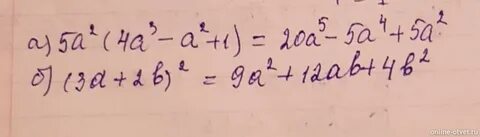 а) 5a²(4a³-a²+1) = 20a⁵-5a⁴+5a²
б) (3a+2b)² = 9a²+12ab+4b²
online-otvet.ru